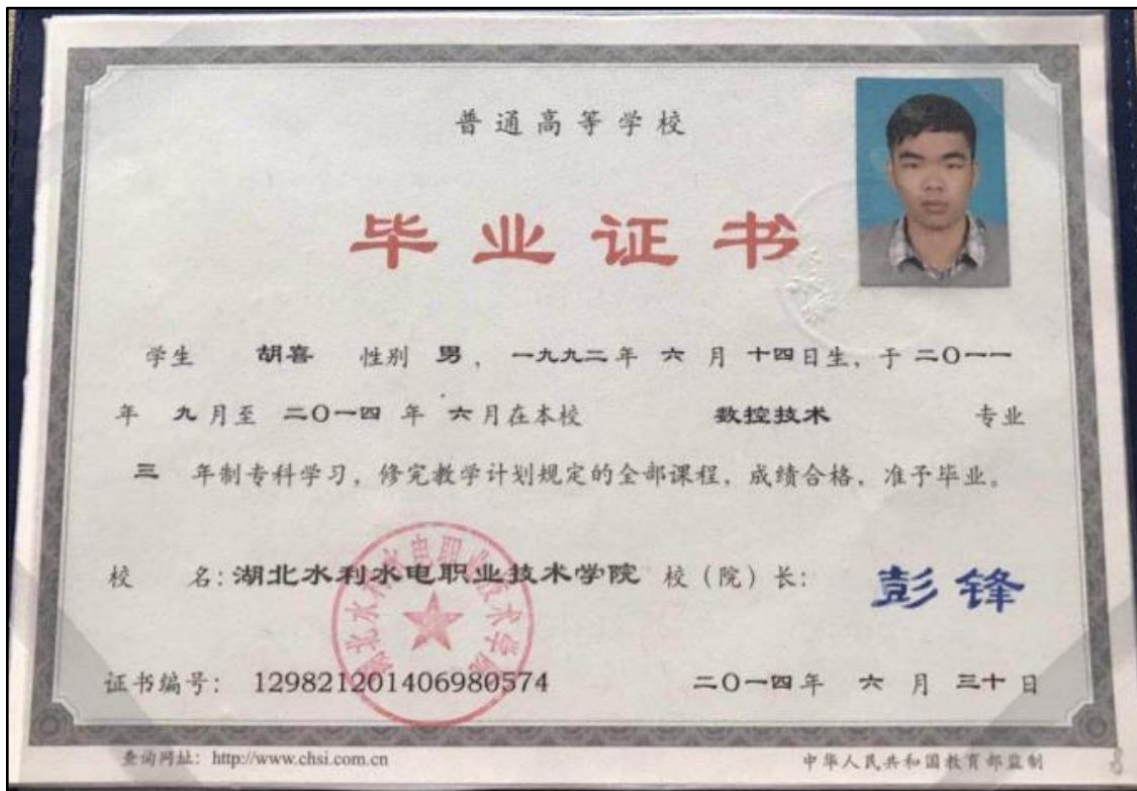 普通高等学校
毕业证书
学生 胡喜 性别 男，一九九二年 六 月 十四日生，于 二〇一一
年 九 月至 二〇一四 年 六 月在本校 数控技术 专业
三 年制专科学习，修完教学计划规定的全部课程，成绩合格，准予毕业。
校 名：湖北水利水电职业技术学院 校（院）长：彭锋
湖北水利水电职业技术学院
证书编号：129821201406980574 二〇一四年 六 月 三十 日
查询网址：http://www.chsi.com.cn 中华人民共和国教育部监制